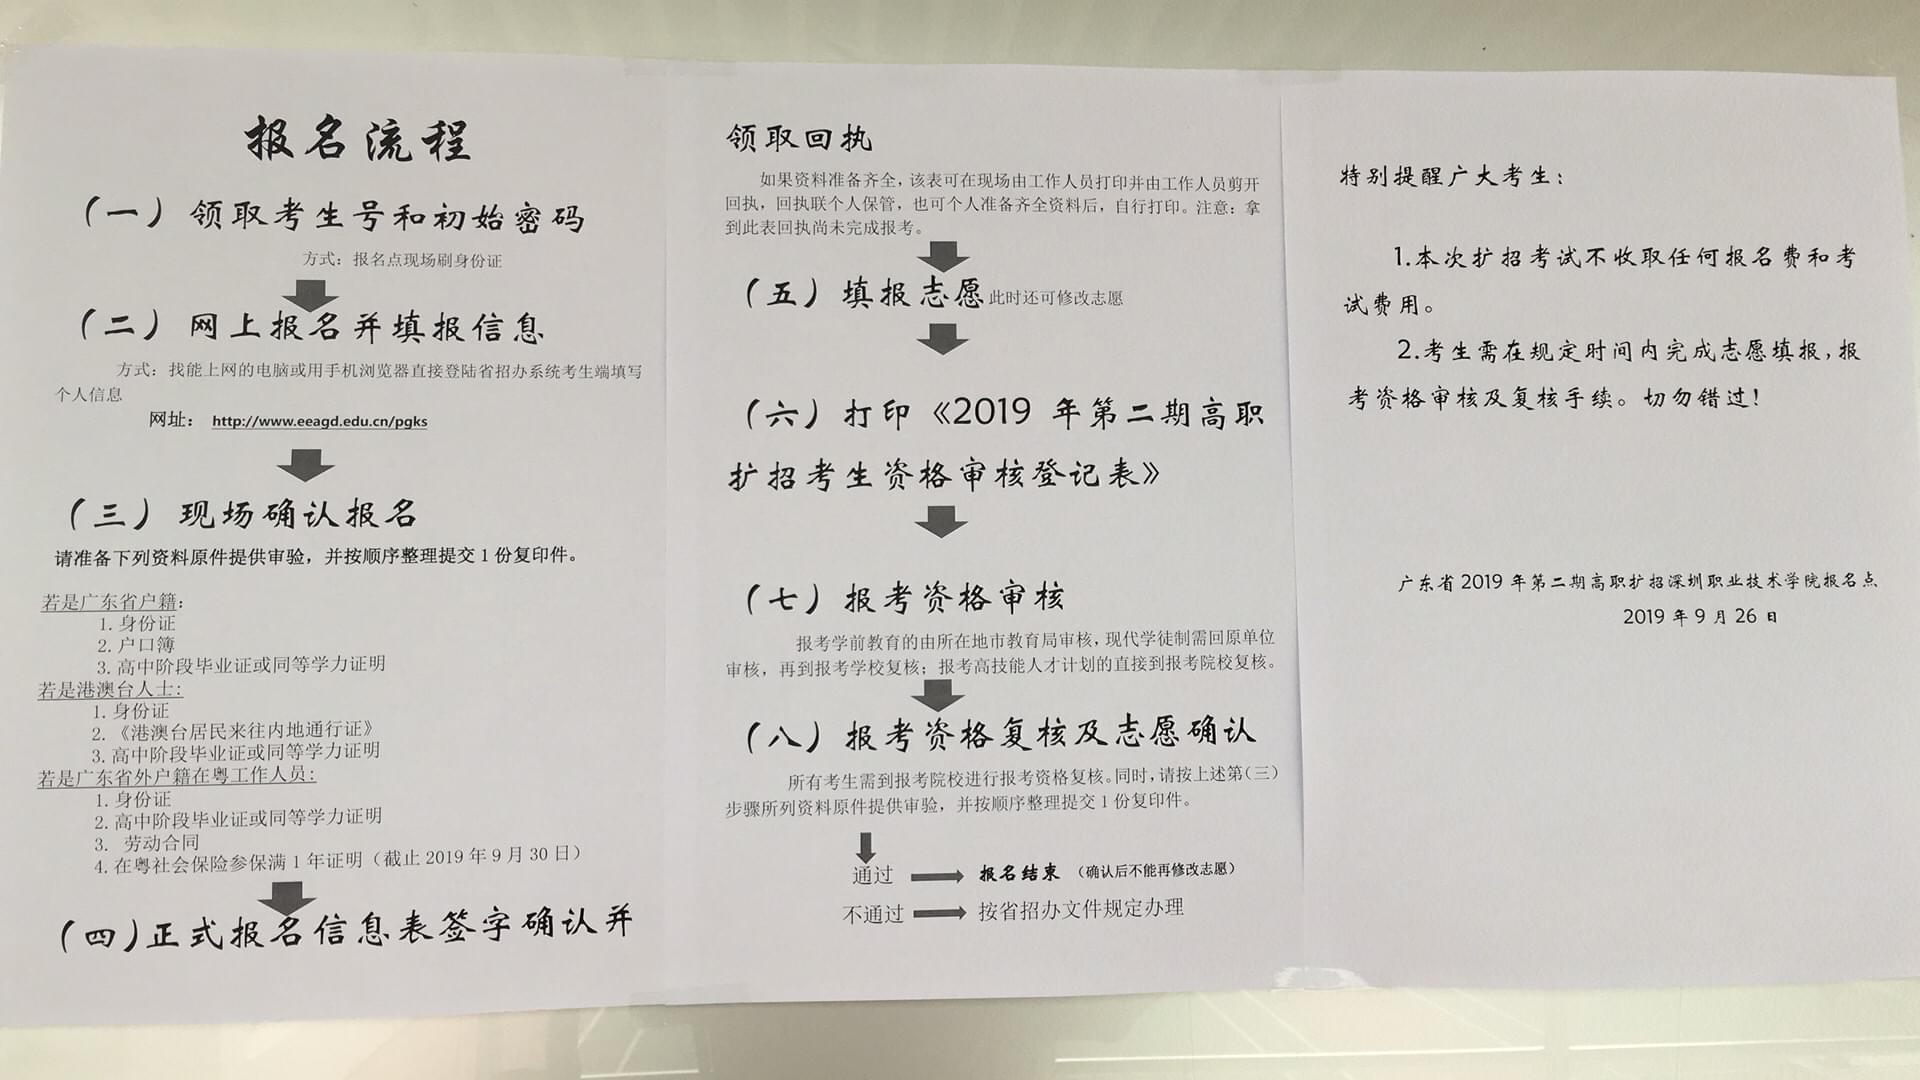 报名流程
（一）领取考生号和初始密码
方式：报名点现场刷身份证
（二）网上报名并填报信息
方式：找能上网的电脑或用手机浏览器直接登陆省招办系统考生端填写
个人信息
网址： http://www.eeagd.edu.cn/pgks
（三）现场确认报名
请准备下列资料原件提供审验，并按顺序整理提交1份复印件。
若是广东省户籍：
1. 身份证
2. 户口簿
3. 高中阶段毕业证或同等学力证明
若是港澳台人士：
1. 身份证
2. 《港澳台居民来往内地通行证》
3. 高中阶段毕业证或同等学力证明
若是广东省外户籍在粤工作人员：
1. 身份证
2. 高中阶段毕业证或同等学力证明
3. 劳动合同
4. 在粤社会保险参保满1年证明（截止2019年9月30日）
（四）正式报名信息表签字确认并
领取回执
如果资料准备齐全，该表可在现场由工作人员打印并由工作人员剪开
回执，回执联个人保管，也可个人准备齐全资料后，自行打印。注意：拿
到此表回执尚未完成报考。
（五）填报志愿 此时还可修改志愿
（六）打印《2019 年第二期高职
扩招考生资格审核登记表》
（七）报考资格审核
报考学前教育的由所在地市教育局审核，现代学徒制需回原单位
审核，再到报考学校复核；报考高技能人才计划的直接到报考院校复核。
（八）报考资格复核及志愿确认
所有考生需到报考院校进行报考资格复核。同时，请按上述第（三）
步骤所列资料原件提供审验，并按顺序整理提交1份复印件。
通过 报名结束 （确认后不能再修改志愿）
不通过 按省招办文件规定办理
特别提醒广大考生：
1.本次扩招考试不收取任何报名费和考
试费用。
2.考生需在规定时间内完成志愿填报，报
考资格审核及复核手续。切勿错过！
广东省 2019 年第二期高职扩招深圳职业技术学院报名点
2019 年 9 月 26 日